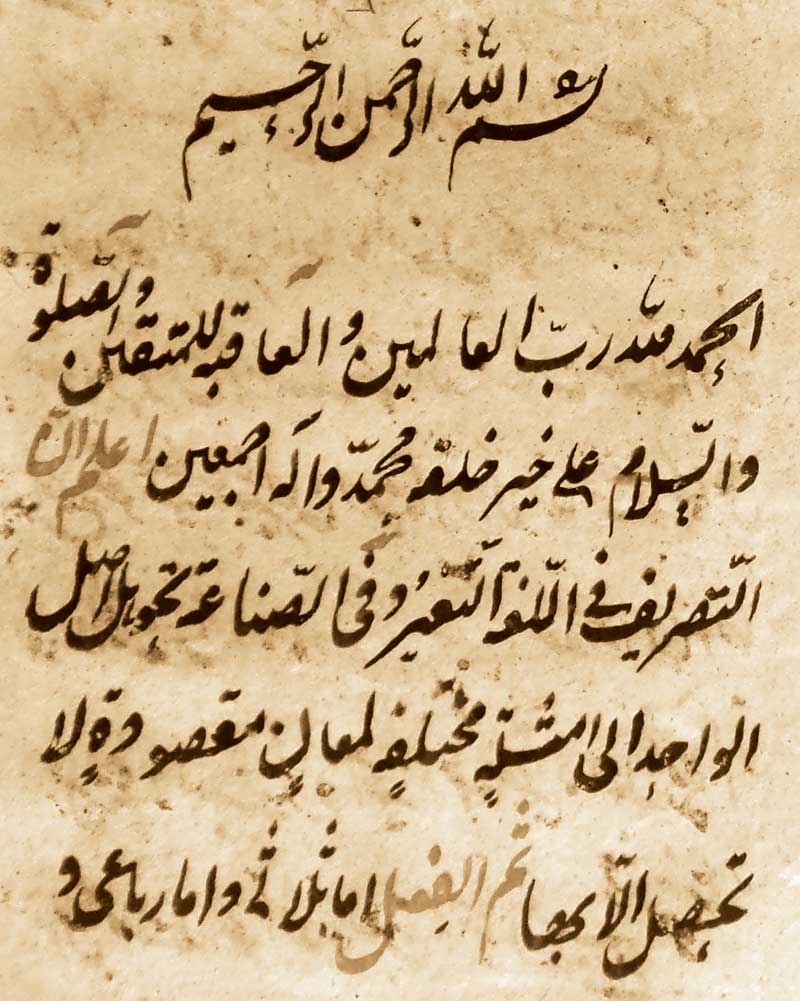 بسم الله الرّحمن الرّحيم
الحمد لله ربّ العالمين والعاقبة للمتقين والصّلوة
والسّلام على خير خلقه محمّد واله اجمعين اعلم انّ
التّصريف في اللّغة التّغيير وفى الصّناعة تحويل الاصل
الواحد الى امثلةٍ مختلفةٍ لمعانٍ مقصودةٍ لا
تحصل الّا بها ثم الفعل اما ثلاثى واما رباعى و